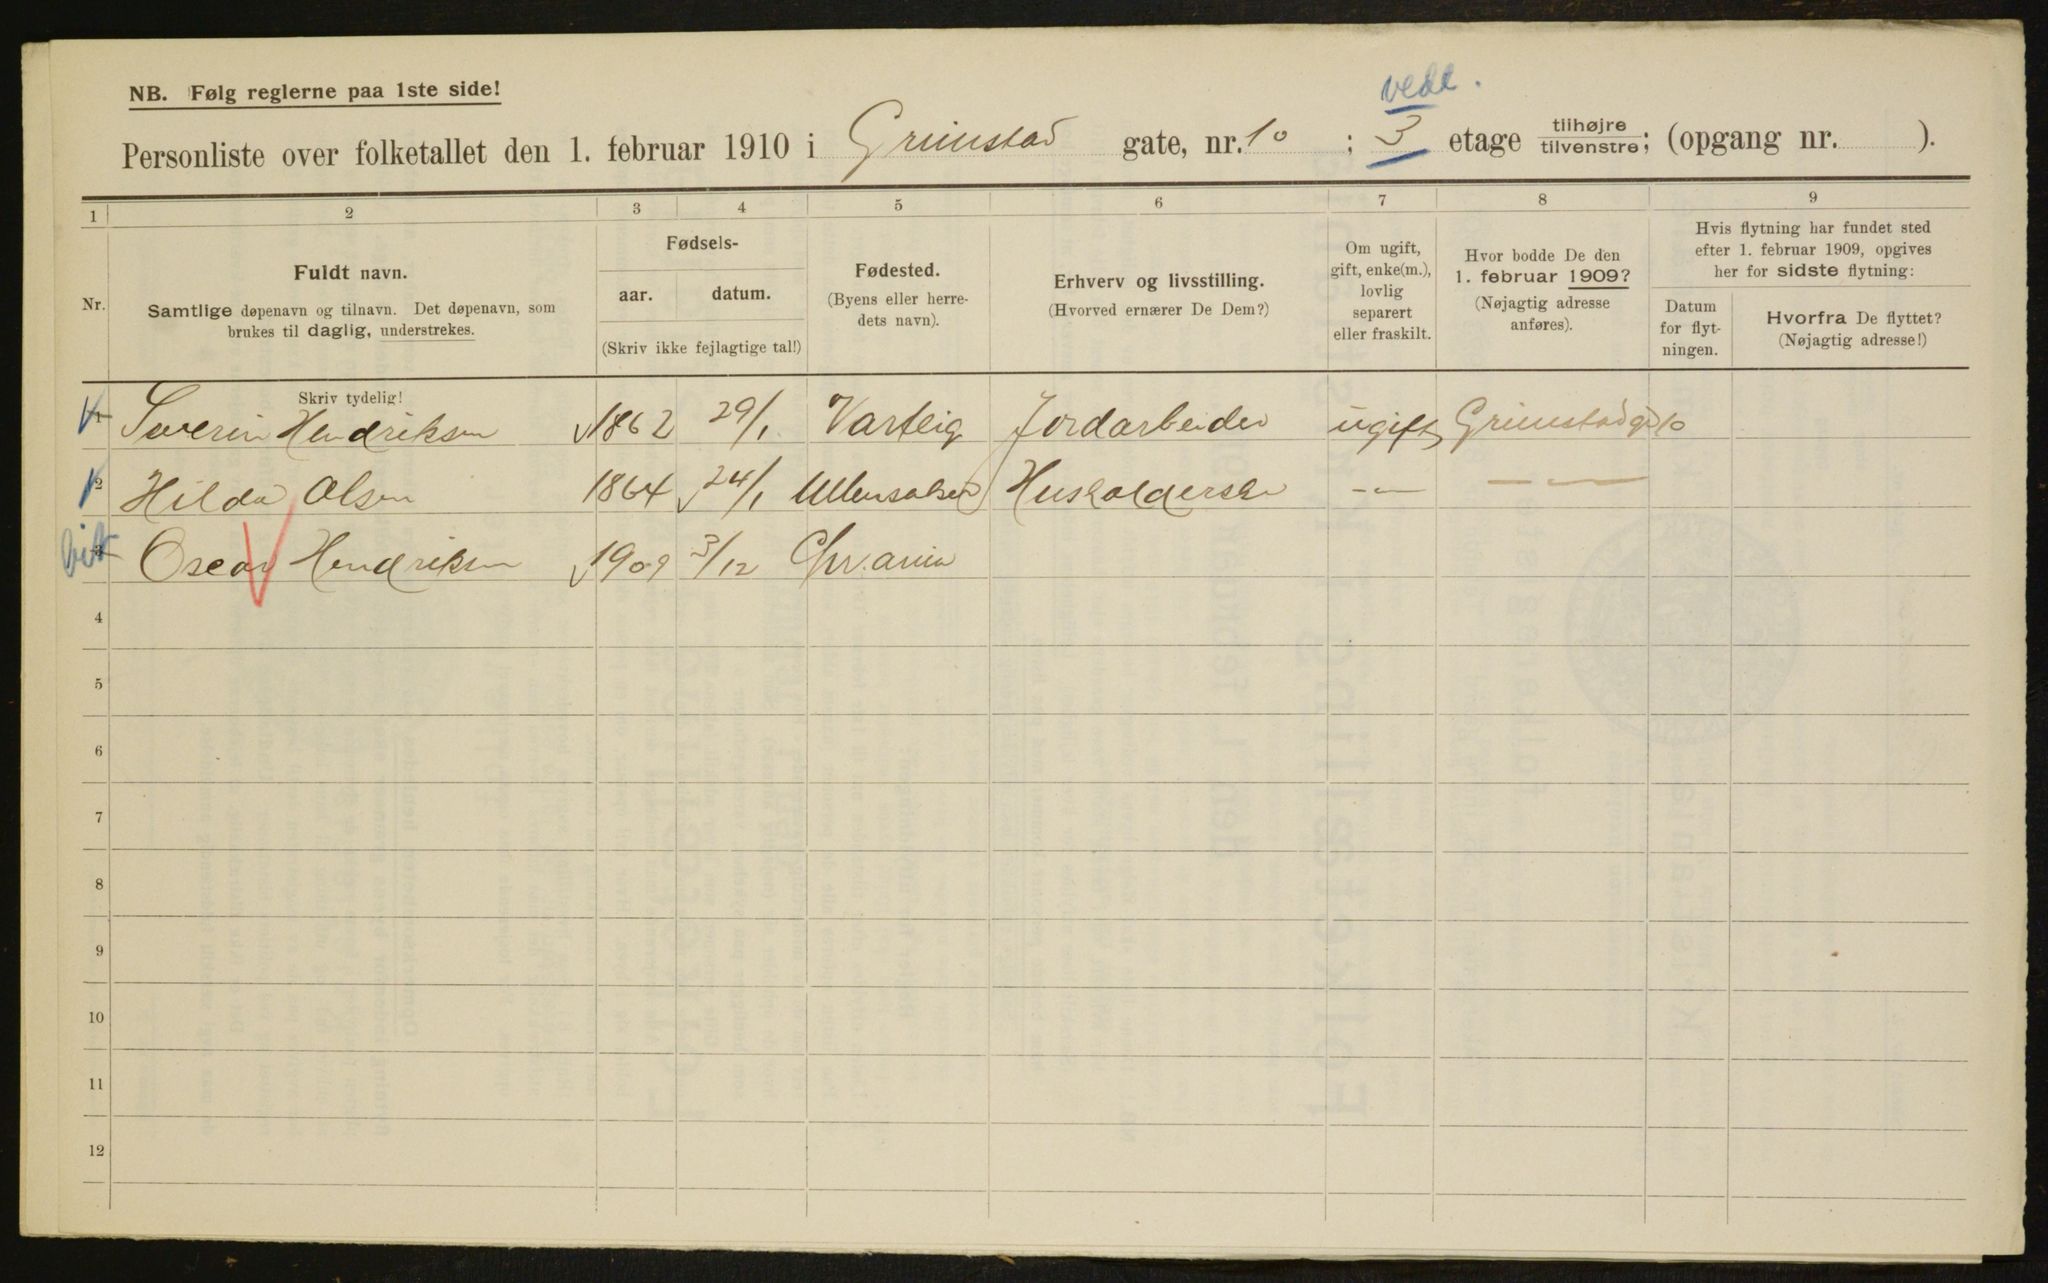 vedl.
NB. Følg reglerne paa 1ste side!
Personliste over folketallet den 1. februar 1910 i Grimstad gate, nr. 10 ; 3 etage tilhøjre tilvenstre; (opgang nr. ).
1 2 3 4 5 6 7 8 9
Nr.
Fuldt navn.
Samtlige døpenavn og tilnavn. Det døpenavn, som
brukes til daglig, understrekes.
Fødsels-
aar. datum.
(Skriv ikke fejlagtige tal!)
Fødested.
(Byens eller herre-
dets navn).
Erhverv og livsstilling.
(Hvorved ernærer De Dem?)
Om ugift,
gift, enke(m.),
lovlig
separert
eller fraskilt.
Hvor bodde De den
1. februar 1909?
(Nøjagtig adresse
anføres).
Hvis flytning har fundet sted
efter 1. februar 1909, opgives
her for sidste flytning:
Datum
for flyt-
ningen.
Hvorfra De flyttet?
(Nøjagtig adresse!)
Skriv tydelig!
1 Severin Hendriksen 1862 29/1 Varteig Jordarbeider ugift Grimstadgd 10
2 Hilda Olsen 1864 24/1 Ullensaker Husholderske — " — — " —
3 Oscar Hendriksen 1909 3/12 Chr.ania
4
5
6
7
8
9
10
11
12